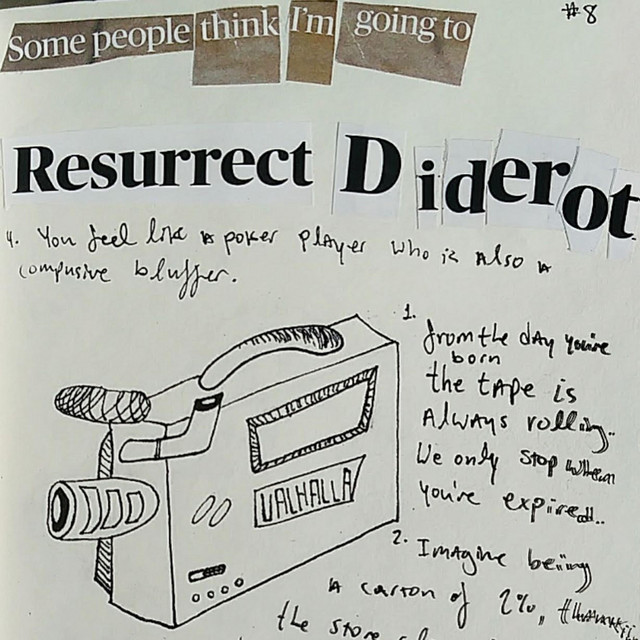 #8
Some people think I'm going to
Resurrect Diderot
4. You feel like a poker player who is also a
compusive bluffer.
1. from the day you're
born
the tape is
Always rolling..
We only stop when
you're expired..
VALHALLA
2. Imagine being
a carton of 2%,
the store